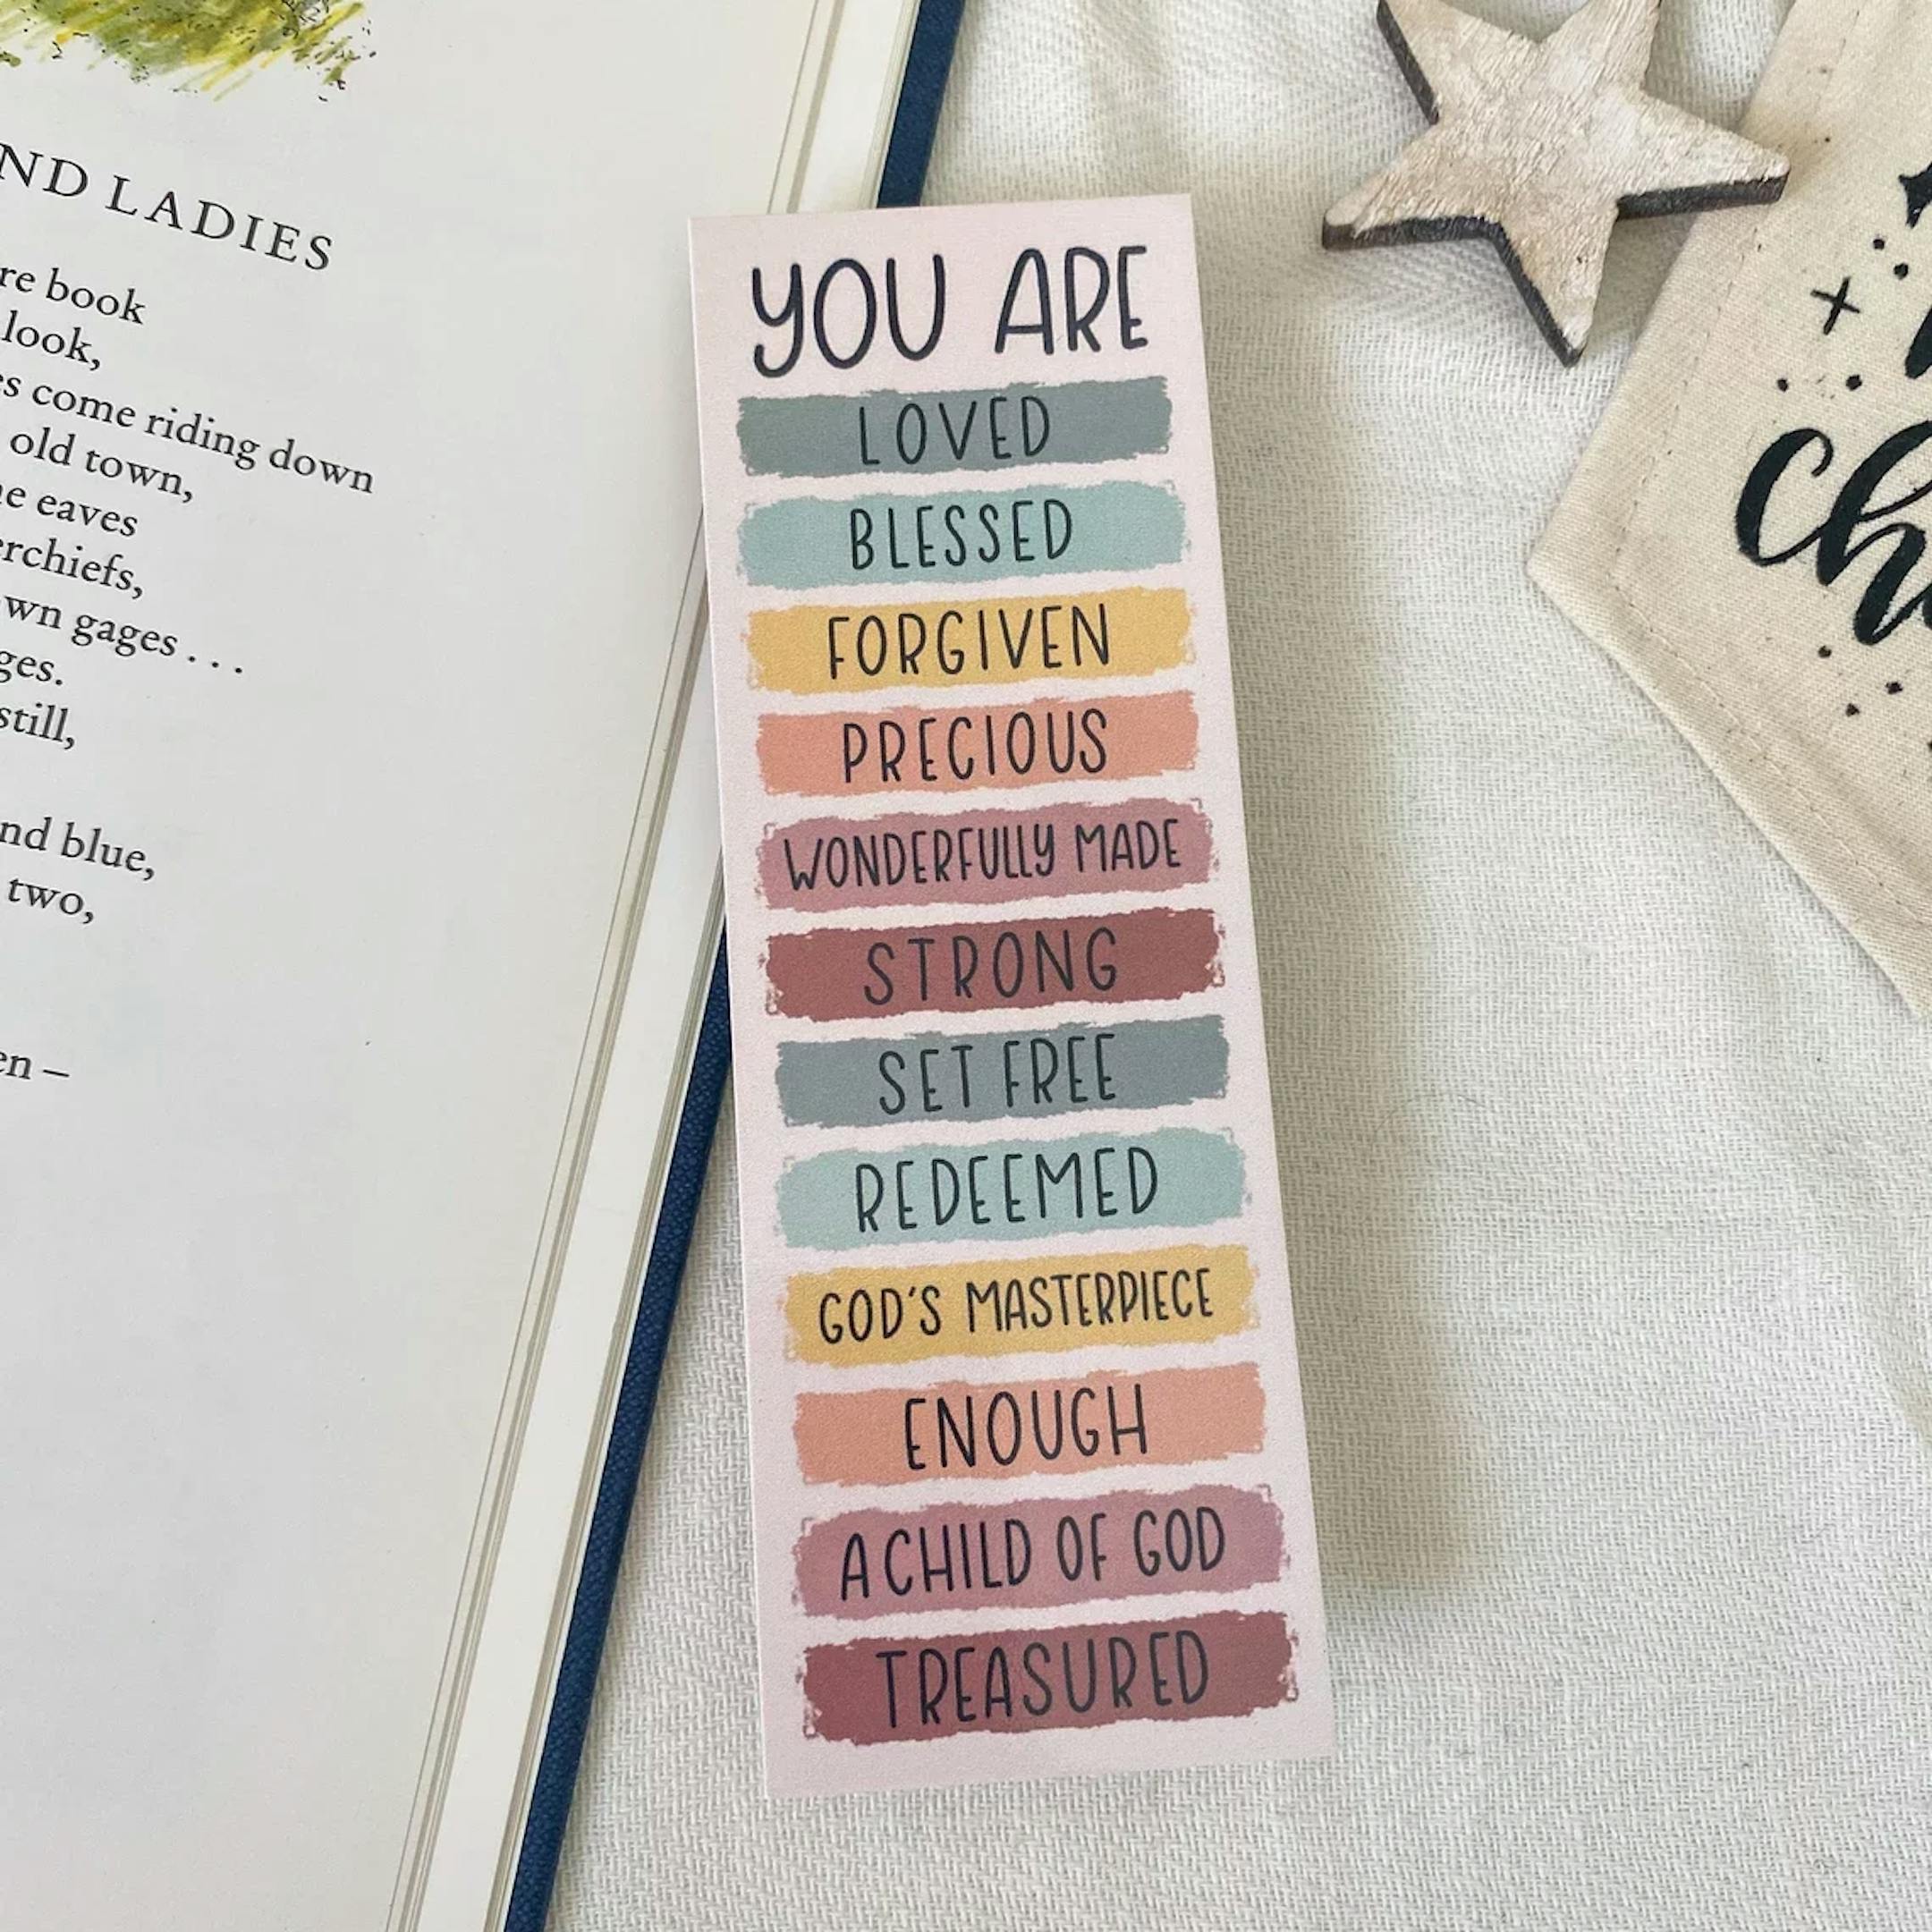 ND LADIES
re book
look,
s come riding down
old town,
e eaves
erchiefs,
wn gages . . .
ges.
still,
nd blue,
two,
en –
YOU ARE
LOVED
BLESSED
FORGIVEN
PRECIOUS
WONDERFULLY MADE
STRONG
SET FREE
REDEEMED
GOD'S MASTERPIECE
ENOUGH
A CHILD OF GOD
TREASURED